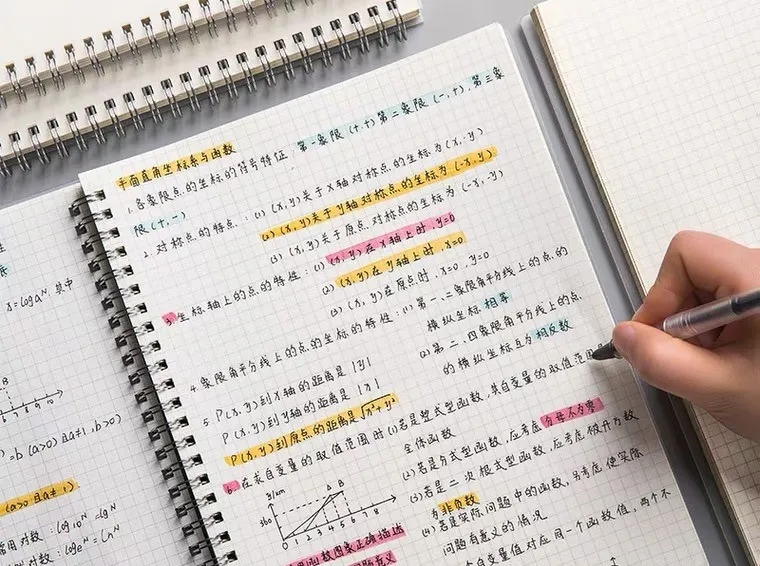 x=logaᴺ, 其中
B
=b (a>0且a≠1, b>0)
(a>0且a≠1)
常用对数: log₁₀ᴺ=lgᴺ
对数: logeᴺ=lnᴺ
平面直角坐标系与函数
1. 各象限点的坐标的符号特征: 第一象限(+,+)第二象限(-,+), 第三象
限(+,-)
2. 对称点的特点: (1) (x,y)关于x轴对称点的坐标为(x,-y)
(2) (x,y)关于y轴对称点的坐标为(-x,y)
(3) (x,y)关于原点对称点的坐标为(-x,-y)
3. 坐标轴上的点的特性: (1) (x,y)在x轴上时, y=0
(2) (x,y)在y轴上时, x=0
(3) (x,y)在原点时, x=0, y=0
4. 象限角平分线上的点的坐标的特性: (1)第一、三象限角平分线上的点的
横纵坐标相等
(2)第二、四象限角平分线上的点
的横纵坐标互为相反数
5. P(x,y)到x轴的距离是|y|
P(x,y)到y轴的距离是|x|
P(x,y)到原点的距离是√x²+y²
6. 在求自变量的取值范围时(1)若是整式型函数, 其自变量的取值范围
全体函数
(2)若是分式型函数, 应考虑分母不为零
(3)若是二次根式型函数, 应考虑被开方数
为非负数
(4)若是实际问题中的函数, 另考虑使实际
问题有意义的情况
个自变量值对应同一个函数值, 两个不
y/km
360
A B
0 1 2 3 4 5 6 7 8
函数图象正确描述
问题意义